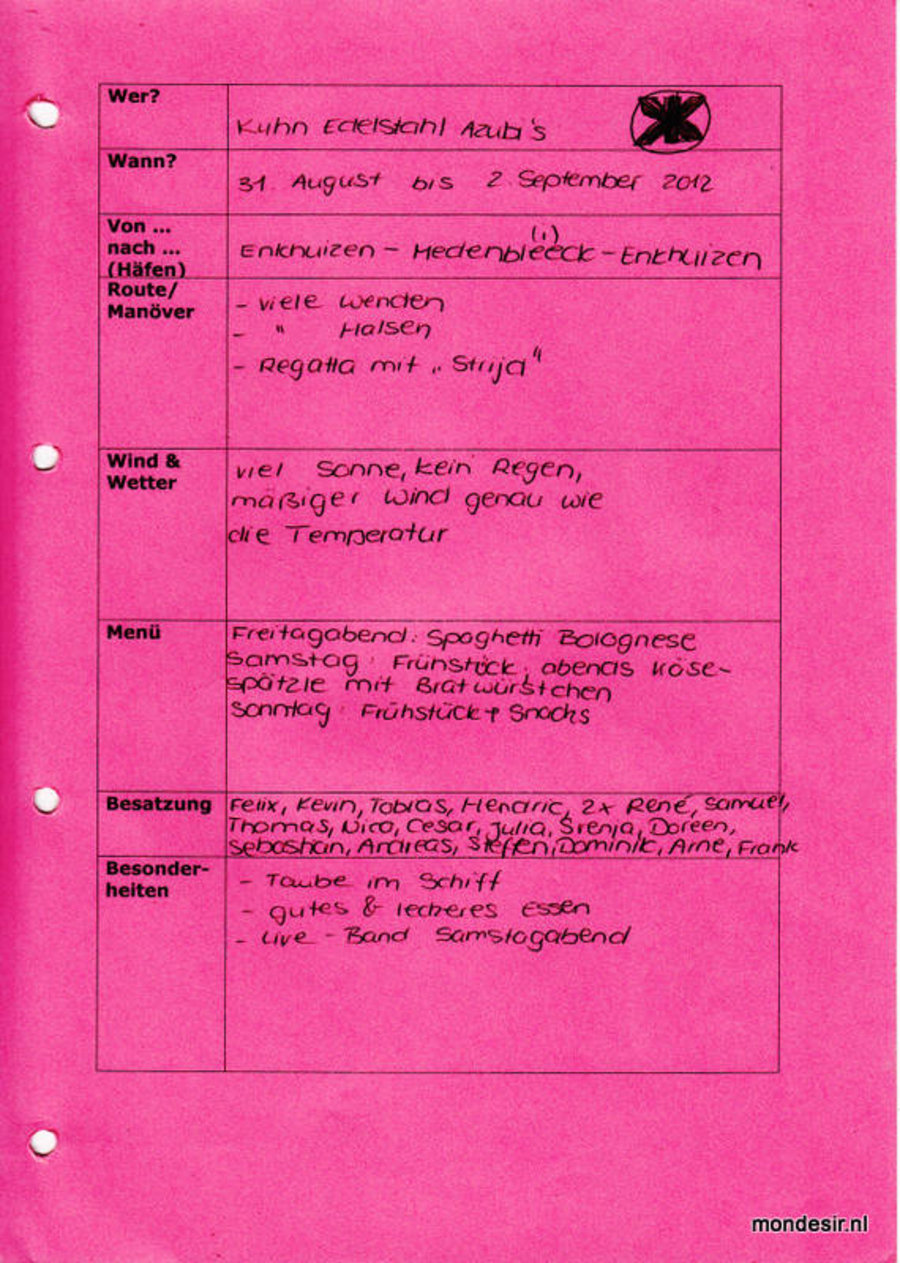 Wer?
Kuhn Edelstahl Azubi's
Wann?
31. August bis 2. September 2012
Von ...
nach ...
(Häfen)
(i)
Enkhuizen - Medenbleeck - Enkhuizen
Route/
Manöver
- viele Wenden
- " Halsen
- Regatta mit „Strijd"
Wind &
Wetter
viel Sonne, kein Regen,
mäßiger Wind genau wie
die Temperatur
Menü
Freitagabend: Spaghetti Bolognese
Samstag: Frühstück, abends Käse-
spätzle mit Bratwürstchen
Sonntag: Frühstück + Snacks
Besatzung
Felix, Kevin, Tobias, Hendric, 2x René, Samuel,
Thomas, Nico, Cesar, Julia, Svenja, Doreen,
Sebastian, Andreas, Steffen, Dominik, Arne, Frank
Besonder-
heiten
- Taube im Schiff
- gutes & leckeres Essen
- Live-Band Samstagabend
mondesir.nl